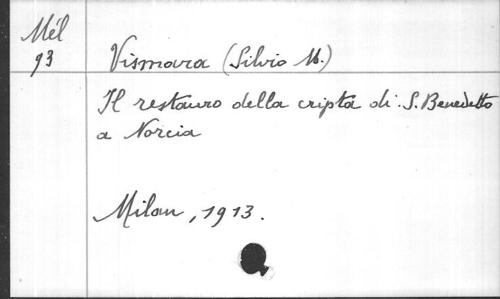 Mél
93
Vismara (Silvio M.)
Il restauro della cripta di S. Benedetto
a Norcia
Milan, 1913.